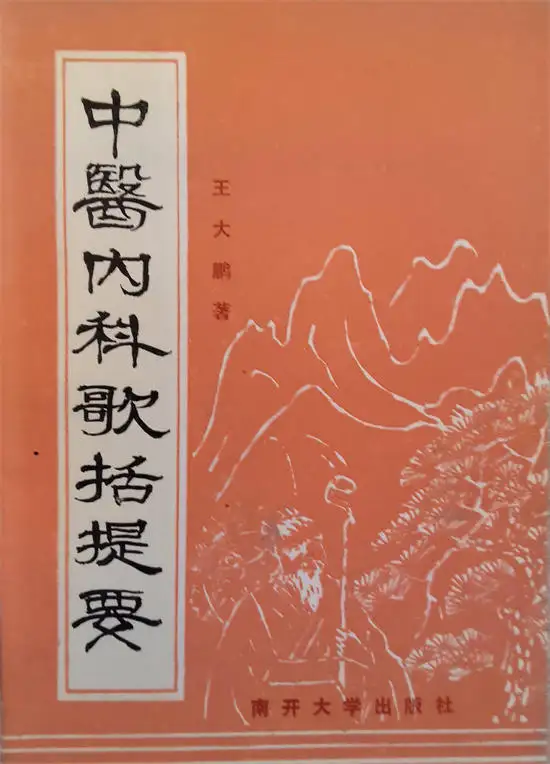 中醫内科歌括提要
王大鹏著
南开大学出版社